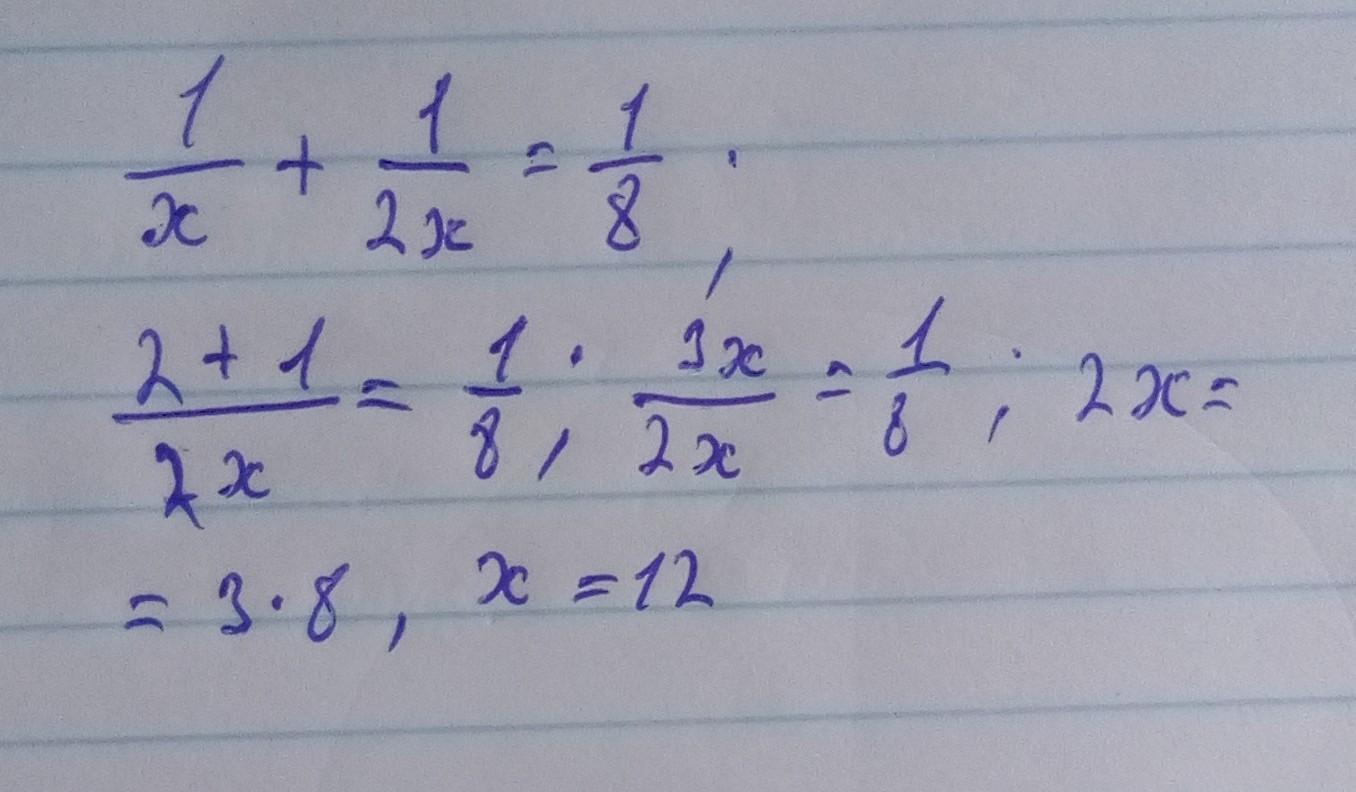 1/x + 1/2x = 1/8 ;
(2+1)/2x = 1/8 ; 3x/2x = 1/8 ; 2x =
= 3·8, x = 12